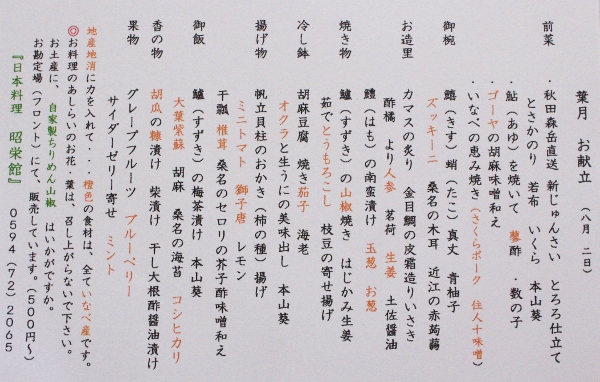 葉月 お献立 (八月 二日)
前菜 ・秋田森岳直送 新じゅんさい とろろ仕立て
とさかのり 若布 いくら 本山葵
・鮎(あゆ)を焼いて 蓼酢 ・数の子
・ゴーヤの胡麻味噌和え
・いなべの恵み焼き(さくらポーク 住人十味噌)
御椀 鱚(きす) 蛸(たこ)真丈 青柚子
ズッキーニ 桑名の木耳 近江の赤蒟蒻
お造里 カマスの炙り 金目鯛の皮霜造りいさき
酢橘 より人参 茗荷 生姜 土佐醤油
鱧(はも)の南蛮漬け 玉葱 お葱
焼き物 鱸(すずき)の山椒焼き はじかみ生姜
茹でとうもろこし 枝豆の寄せ揚げ
冷し鉢 胡麻豆腐 焼き茄子 海老
オクラと生うにの美味出し 本山葵
揚げ物 帆立貝柱のおかき(柿の種)揚げ
ミニトマト 獅子唐 レモン
干瓢 椎茸 桑名のセロリの芥子酢味噌和え
御飯 鱸(すずき)の梅茶漬け 本山葵
大葉紫蘇 胡麻 桑名の海苔 コシヒカリ
香の物 胡瓜の糠漬け 柴漬け 干し大根酢醤油漬け
果物 グレープフルーツ ブルーベリー
サイダーゼリー寄せ ミント
地産地消に力を入れて・・・橙色の食材は、全ていなべ産です。
◎お料理のあしらいのお花・葉は、召し上がらないで下さい。
お土産に、 自家製ちりめん山椒 はいかがですか。
お勘定場(フロント)にて、販売しています。(500円~)
『日本料理 昭栄館』 0594(72)2065